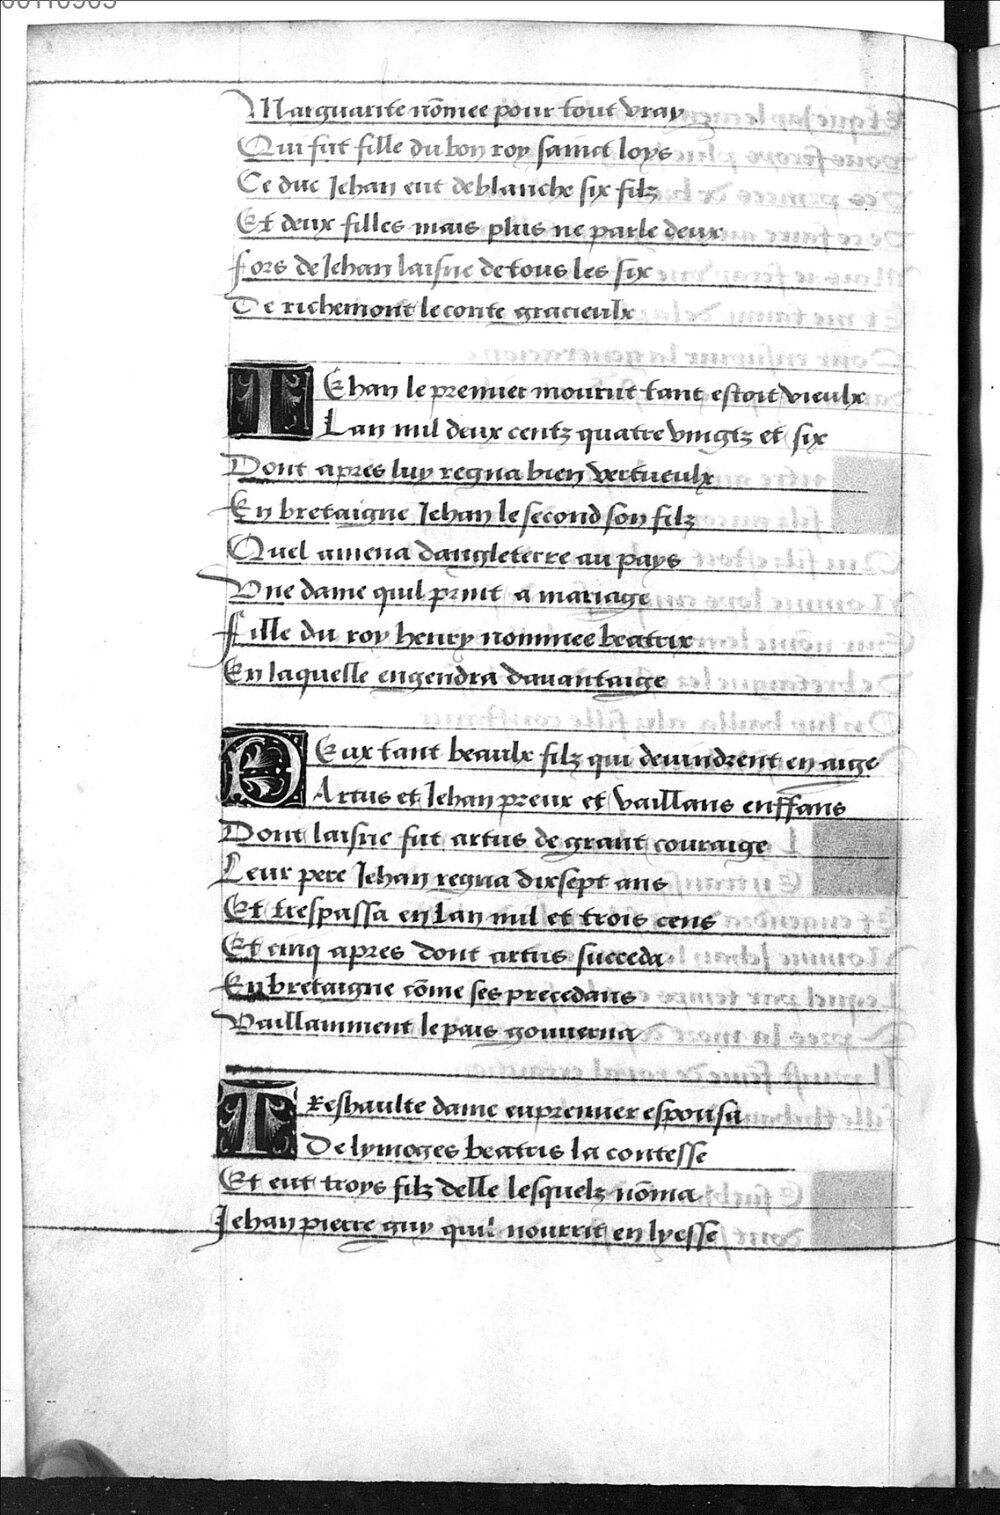 Marguarite nōmee pour tout vray
Qui fut fille du bon roy sainct loys
Ce duc Jehan eut de blanche six filz
Et deux filles mais plus ne parle deux
fors de Jehan laisne de tous les six
De richemont le conte gracieulx
IEhan le premier mourut tant estoit vieulx
Lan mil deux centz quatre vingtz et six
Dont apres luy regna bien vertueulx
En bretaigne Jehan le second son filz
Quel amena dangleterre au pays
Vne dame quil print a mariage
Fille du roy henry nommee beatrix
En laquelle engendra dauantaige
DEux tant beaulx filz qui deuindrent en aige
Artus et Jehan preux et vaillans enffans
Dont laisne fut artus de grant couraige
Leur pere Jehan regna dixsept ans
Et trespassa en Lan mil et trois cens
Et cinq apres dont artus succeda
En bretaigne cōme ses precedans
Vaillamment le pais gouuerna
TReshaulte dame en premier espousa
De lymoges beatris la contesse
Et eut troys filz delle lesquelz nōma
Jehan pierre guy quil nourrit en lyesse